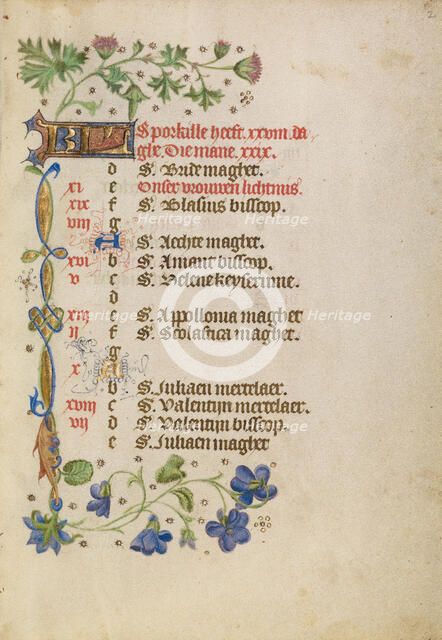 2
KL Sporkille heeft .xxviij. da
ghe. Die mane .xxix.
d S. Bride maghet.
xi e Onser vrouwen lichtmis.
xix f S. Blasius bisscop.
viij g
A S. Aechte maghet.
xvi b S. Amant bisscop.
v c S. Helene keyserinne.
d
xiij e S. Appollonia maghet
ij f S. Scolastica maghet.
g
x A
b S. Juliaen mertelaer.
xviij c S. Valentijn mertelaer.
vij d S. Valentijn bisscop.
e S. Juliaen maghet
Heritage
Heritage
Heritage
Heritage
Heritage
Heritage